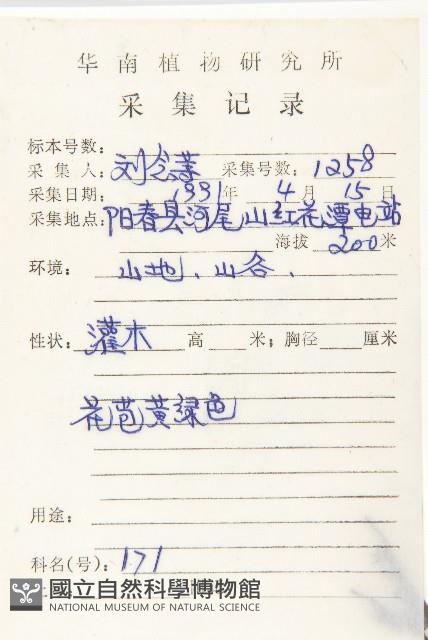 华南植物研究所
采集记录
标本号数:
采集人: 刘念等 采集号数: 1258
采集日期: 1991年 4月 15日
采集地点: 阳春县河尾山红花潭电站
海拔 200米
环境: 山地、山谷.
性状: 灌木 高 米; 胸径 厘米
花苞黄绿色
用途:
科名(号): 171
國立自然科學博物館
NATIONAL MUSEUM OF NATURAL SCIENCE